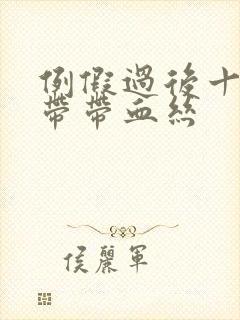 例假過後十
帶帶血絲
侯麗軍